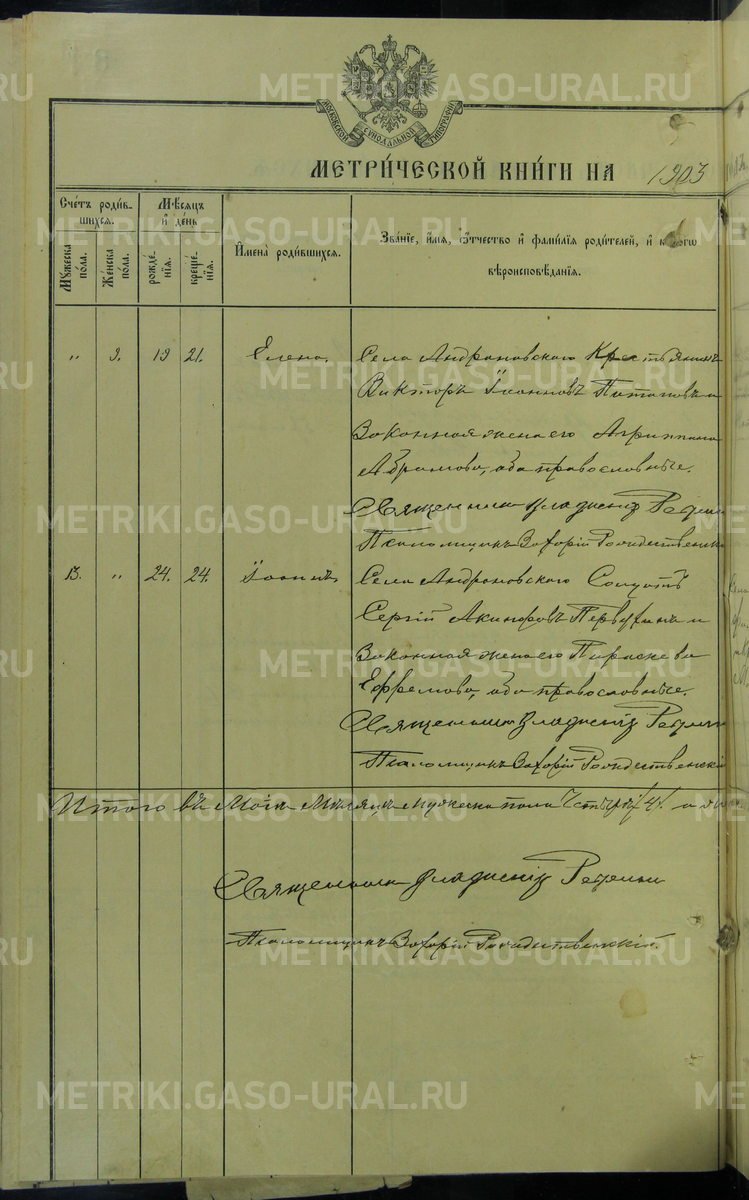 МОСКОВСКОЙ СѴНОДАЛЬНОЙ ТИПОГРАФІИ
МЕТРИ́ЧЕСКОЙ КНИ́ГИ НА 1903
Сче́тъ роди́вшихся.
Мѣ́сяцъ и҆ де́нь
Мꙋ́жеска по́ла.
Же́нска по́ла.
рожде́нїя.
креще́нїя.
И҆мена̀ роди́вшихся.
Зва́нїе, и҆́мя, ѻ҆́тчество и҆ фами́лїя роди́телей, и҆
вѣроисповѣ́данїя.
„ 9. 19 21. Елена. Села Андроновскаго Крестьянинъ
Викторъ Іоанновъ Потаповъ и
Законная жена его Агриппина
Абрамова, оба православные.
Священникъ Владиміръ
Псаломщикъ Захарій Рождественскій
13. „ 24. 24. Іоаннъ. Села Андроновскаго Солдатъ
Сергій Акинфовъ Первухинъ и
Законная жена его Параскева
Ефремова, оба православные.
Священникъ Владиміръ
Псаломщикъ Захарій Рождественскій
Итого въ Маіи Мѣсяцѣ мужеска пола Четыре /4/. а
Священникъ Владиміръ
Псаломщикъ Захарій Рождественскій.
METRIKI.GASO-URAL.RU